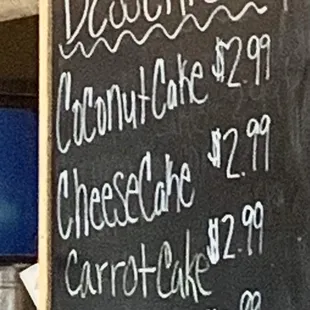 Coconut Cake $2.99
Cheese Cake $2.99
Carrot Cake $2.99